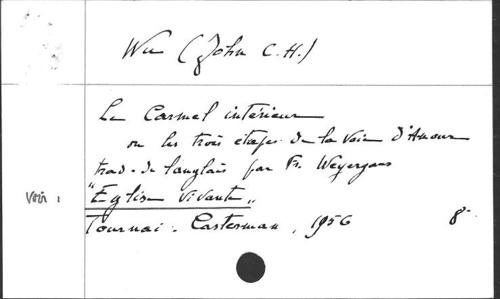 Wu (John C.H.)
Le Carmel intérieur
ou les trois étapes de la Voie d'Amour
trad. de l'anglais par Fr. Weyergans
Voir : "Eglise Vivante"
Tournai. Casterman, 1956 8°